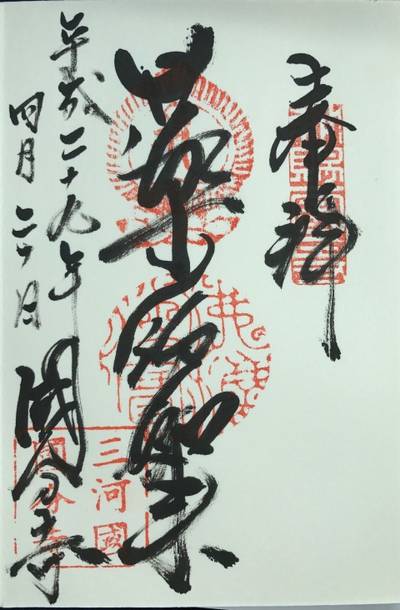 奉拝
薬師如来
平成二十九年
四月二十日
國分寺
三河國
國分寺